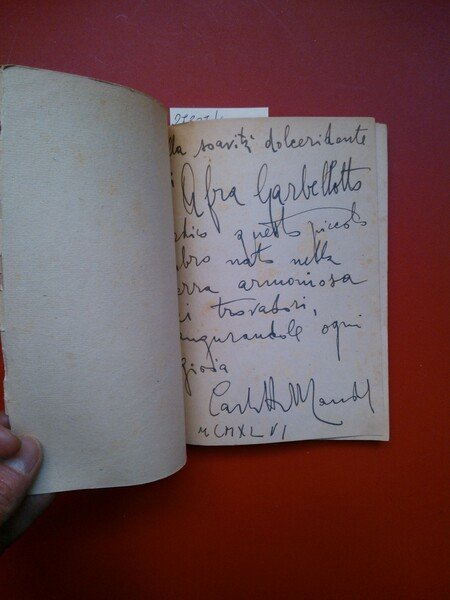 lla soavità dolceridente
i Afra Garbellotto
dico questo piccolo
bro nato nella
erra armoniosa
i trovatori,
ugurandole ogni
gioia
Carlotta Mandel
MCMXLVI